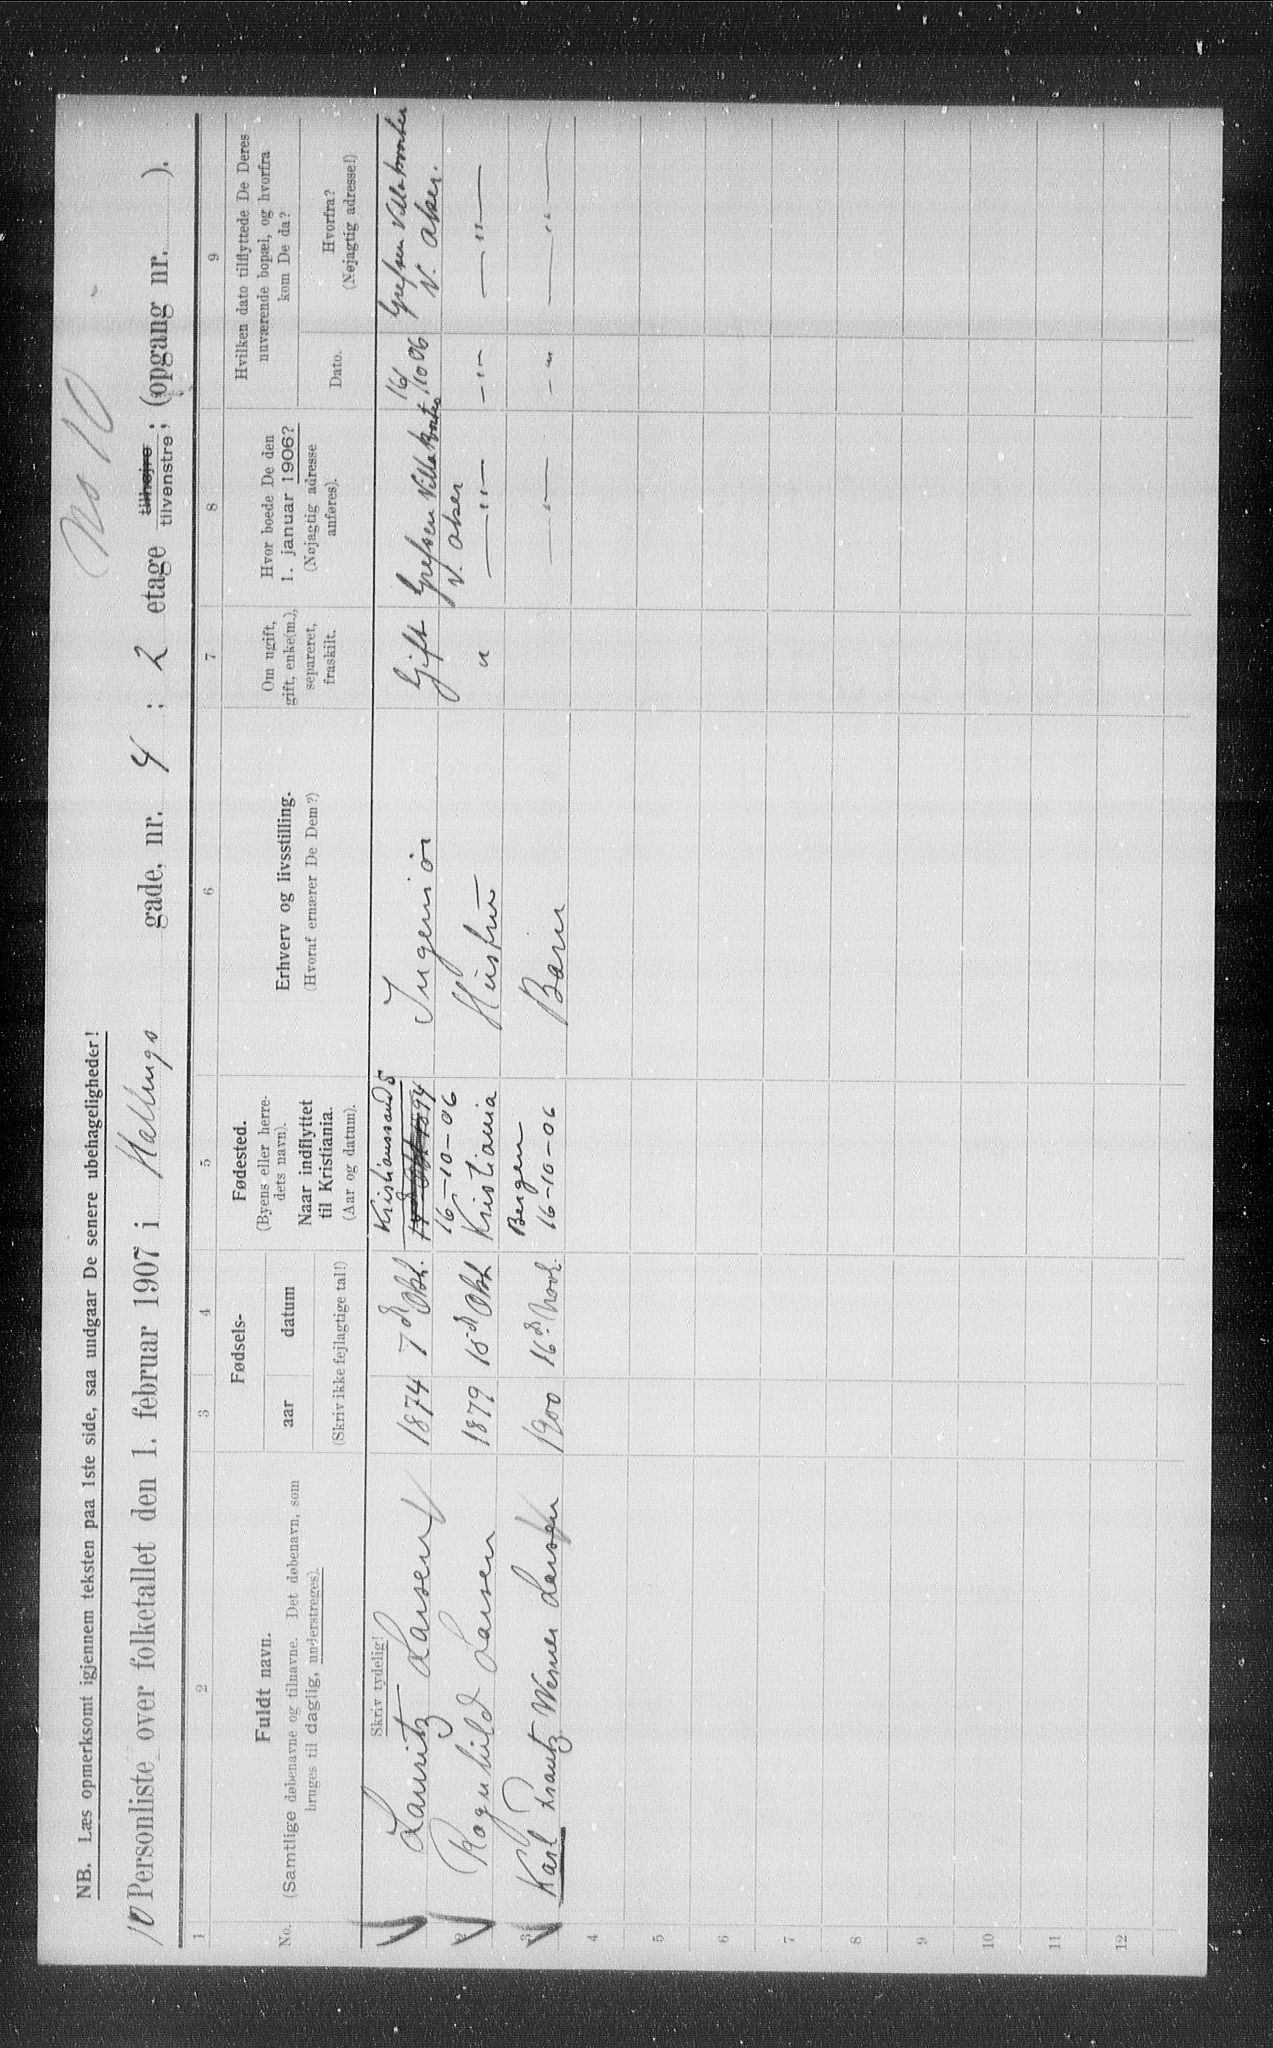 No 10
NB. Læs opmerksomt igjennem teksten paa 1ste side, saa undgaar De senere ubehageligheder!
10 Personliste over folketallet den 1. februar 1907 i Hallings gade, nr. 4 : 2 etage tilhøjre tilvenstre; (opgang nr. ).
1 2 3 4 5 6 7 8 9
No.
Fuldt navn.
(Samtlige døbenavne og tilnavne. Det døbenavn, som
bruges til daglig, understreges).
Fødsels-
aar datum
(Skriv ikke fejlagtige tal!)
Fødested.
(Byens eller herre-
dets navn).
Naar indflyttet
til Kristiania.
(Aar og datum).
Erhverv og livsstilling.
(Hvoraf ernærer De Dem?)
Om ugift,
gift, enke(m.),
separeret,
fraskilt.
Hvor boede De den
1. januar 1906?
(Nøjagtig adresse
anføres).
Hvilken dato tilflyttede De Deres
nuværende bopæl, og hvorfra
kom De da?
Dato.
Hvorfra?
(Nøjagtig adresse!)
Skriv tydelig!
Lauritz Larsen 1874 7d Okt. Kristianssand S Ingeniør Gift Grefsen Villa 16/10 06 Grefsen Villa
16-10-06 V. Aker V. Aker.
2 Ragnhild Larsen 1879 15d Okt Kristiania Hustru " — " — - " - — " —
3 Karl Frantz Werner Larsen 1900 16d Novb. Bergen Barn — " — - " - — " —
16-10-06
4
5
6
7
8
9
10
11
12